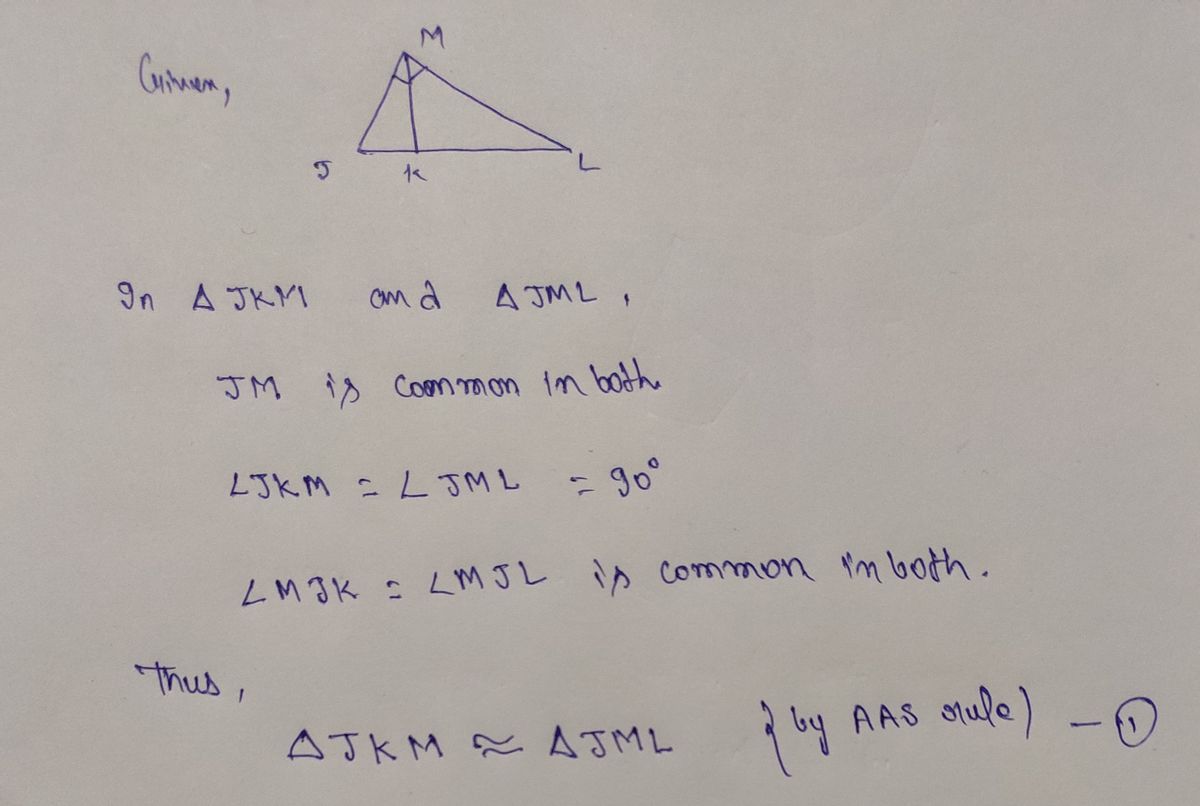 M
Given,
J K L
In Δ JKM and Δ JML,
JM is common in both
∠JKM = ∠JML = 90°
∠MJK = ∠MJL is common in both.
Thus,
ΔJKM ≈ ΔJML {by AAS rule} - ①